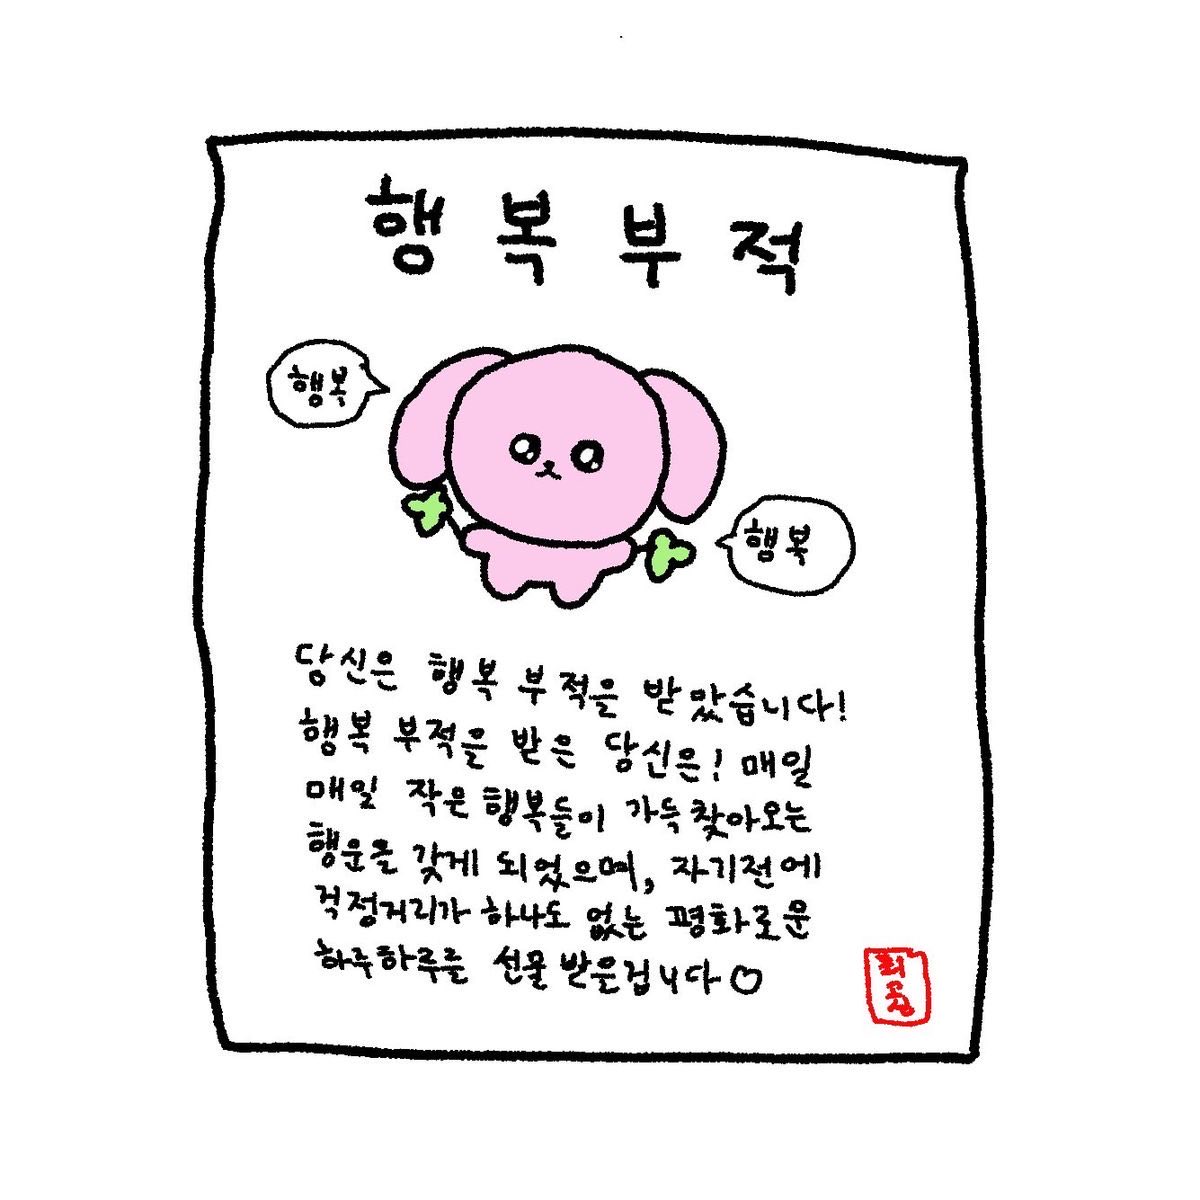 행복부적
행복
행복
당신은 행복 부적을 받았습니다!
행복 부적을 받은 당신은! 매일
매일 작은 행복들이 가득 찾아오는
행운을 갖게 되었으며, 자기전에
걱정거리가 하나도 없는 평화로운
하루하루를 선물 받을겁니다♡